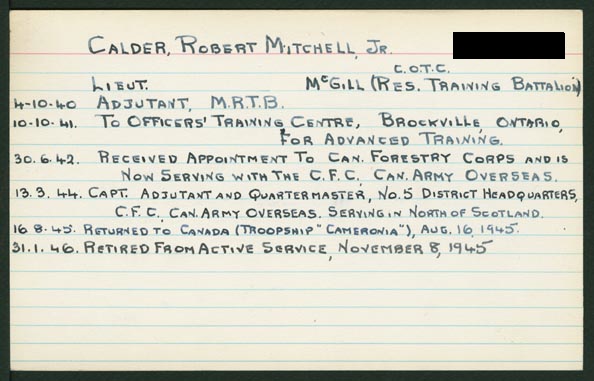 CALDER, ROBERT MITCHELL, JR.
C.O.T.C.
LIEUT. McGILL (RES. TRAINING BATTALION)
4-10-40 ADJUTANT, M.R.T.B.
10-10-41. TO OFFICERS' TRAINING CENTRE, BROCKVILLE, ONTARIO,
FOR ADVANCED TRAINING.
30.6.42. RECEIVED APPOINTMENT TO CAN. FORESTRY CORPS AND IS
NOW SERVING WITH THE C.F.C, CAN. ARMY OVERSEAS.
13.3.44. CAPT. ADJUTANT AND QUARTERMASTER, NO.5 DISTRICT HEADQUARTERS,
C.F.C, CAN. ARMY OVERSEAS. SERVING IN NORTH OF SCOTLAND.
16.8.45. RETURNED TO CANADA (TROOPSHIP "CAMERONIA"), AUG. 16, 1945.
31.1.46. RETIRED FROM ACTIVE SERVICE, NOVEMBER 8, 1945